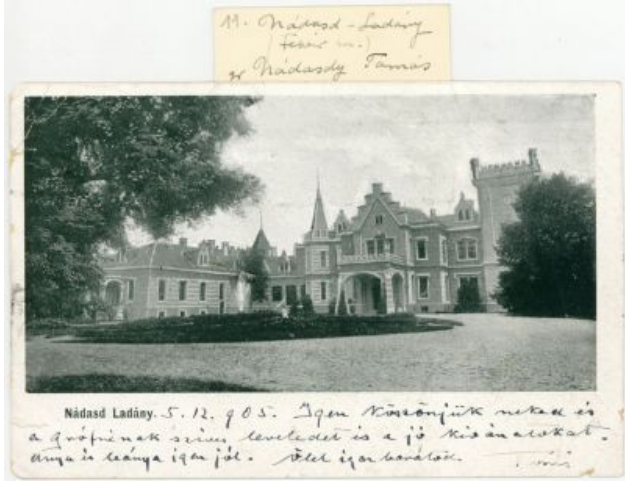 11. Nádasd-Ladány
(Fehér m.)
gr Nádasdy Tamás
Nádasd Ladány. 5. 12. 905. Igen köszönjük neked és
a grófnénak szíves leveledet is a jó kivánatokat.
Anya is leánya igen jól. Ölel igaz barátod.